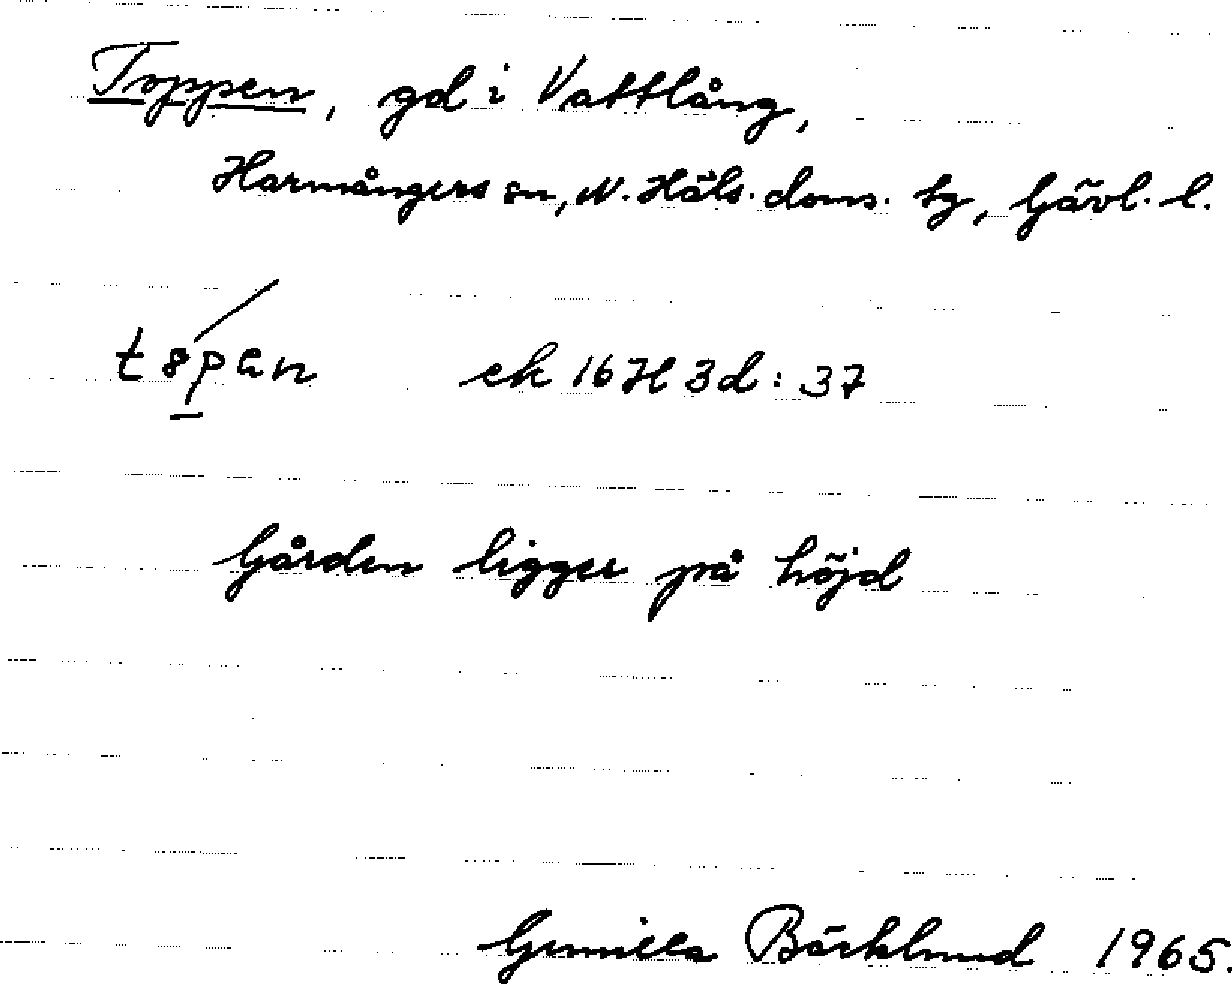 Toppen, gd i Vattlång,
Harmångers sn, N. Häls. doms. tg, Gävl. l.
ek 16 H 3 d : 37
Gården ligger på höjd
Gunilla Bäcklund 1965.